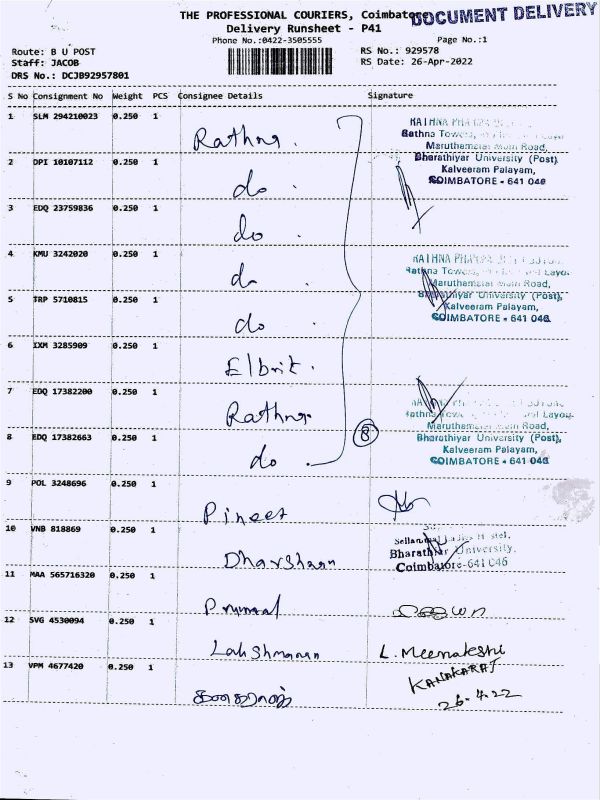 THE PROFESSIONAL COURIERS, Coimbatore
DOCUMENT DELIVERY
Delivery Runsheet - P41
Phone No.:0422-3505555
Page No.:1
Route: B U POST
RS No.: 929578
Staff: JACOB
RS Date: 26-Apr-2022
DRS No.: DCJB92957801
S No Consignment No Weight PCS Consignee Details Signature
1 SLM 294210023 0.250 1 Rathna.
2 DPI 10107112 0.250 1 do
3 EDQ 23759836 0.250 1 do
4 KMU 3242020 0.250 1 do
5 TRP 5710815 0.250 1 do
6 IXM 3285909 0.250 1 Elbrit.
7 EDQ 17382200 0.250 1 Rathna
8 EDQ 17382663 0.250 1 do
8
RATHNA
Rathna Towers,
Maruthamalai Main Road,
Bharathiyar University (Post),
Kalveeram Palayam,
COIMBATORE - 641 046
RATHNA
Rathna Towers, Layou
Maruthamalai Main Road,
Bharathiyar University (Post),
Kalveeram Palayam,
COIMBATORE - 641 046
Layou
Maruthamalai Main Road,
Bharathiyar University (Post),
Kalveeram Palayam,
COIMBATORE - 641 046
9 POL 3248696 0.250 1 Pineet
10 VNB 818869 0.250 1 Dharshaan
Ladies Hostel,
Bharathiar University,
Coimbatore-641 046
11 MAA 565716320 0.250 1
12 SVG 4530094 0.250 1 Lakshmanan L. Meenakshi
13 VPM 4677420 0.250 1 கனகராஜ் KANAKARAJ
26.4.22